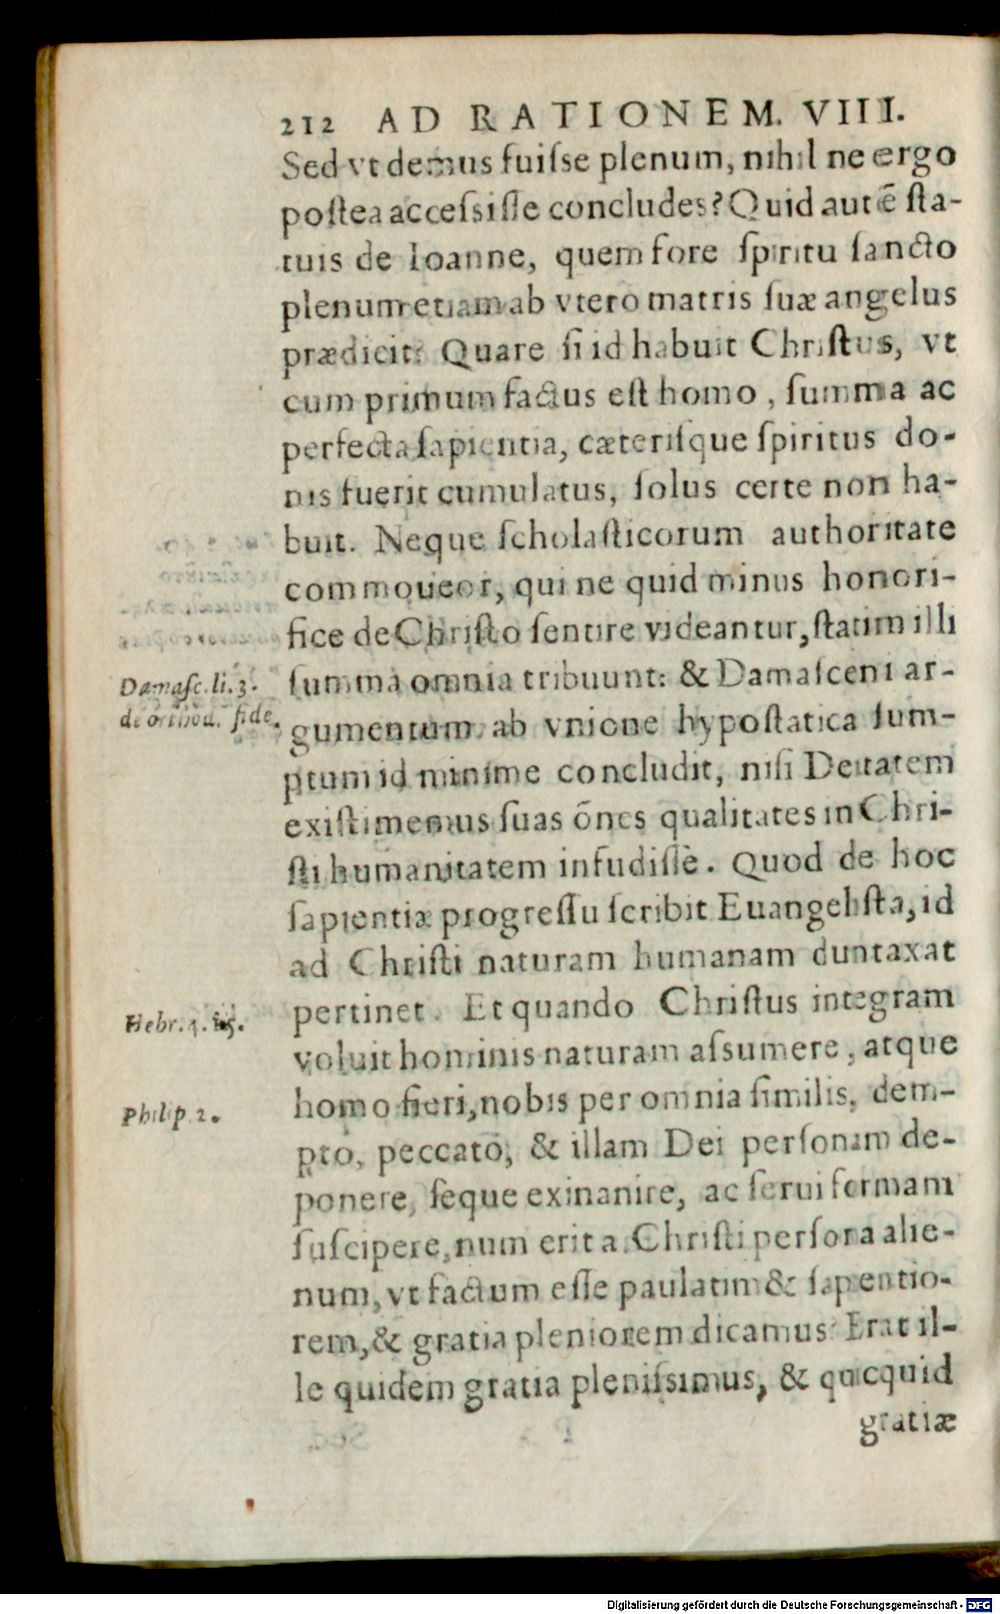 212 AD RATIONEM. VIII.
Sed vt demus fuiſse plenum, nihil ne ergo
poſtea acceſsiſſe concludes? Quid autē ſta-
tuis de Ioanne, quem fore ſpiritu ſancto
plenum etiam ab vtero matris ſuæ angelus
prædicit? Quare ſi id habuit Chriſtus, vt
cum primum factus eſt homo, ſumma ac
perfecta ſapientia, cæteriſque ſpiritus do-
nis fuerit cumulatus, ſolus certe non ha-
buit. Neque ſcholaſticorum authoritate
commoueor, qui ne quid minus honori-
fice de Chriſto ſentire videantur, ſtatim illi
ſumma omnia tribuunt: & Damaſceni ar-
Damaſc. li. 3.
de orthod. fide.
gumentum ab vnione hypoſtatica ſum-
ptum id minime concludit, niſi Deitatem
exiſtimemus ſuas ōnes qualitates in Chri-
ſti humanitatem infudiſſe. Quod de hoc
ſapientiæ progreſſu ſcribit Euangeliſta, id
ad Chriſti naturam humanam duntaxat
pertinet. Et quando Chriſtus integram
Hebr. 4.
voluit hominis naturam aſsumere, atque
homo fieri, nobis per omnia ſimilis, dem-
Philip 2.
pto, peccato, & illam Dei perſonam de-
ponere, ſeque exinanire, ac ſerui formam
ſuſcipere, num erit a Chriſti perſona alie-
num, vt factum eſſe paulatim & ſapientio-
rem, & gratia pleniorem dicamus? Erat il-
le quidem gratia pleniſsimus, & quicquid
gratiæ
Digitalisierung gefördert durch die Deutsche Forschungsgemeinschaft - DFG